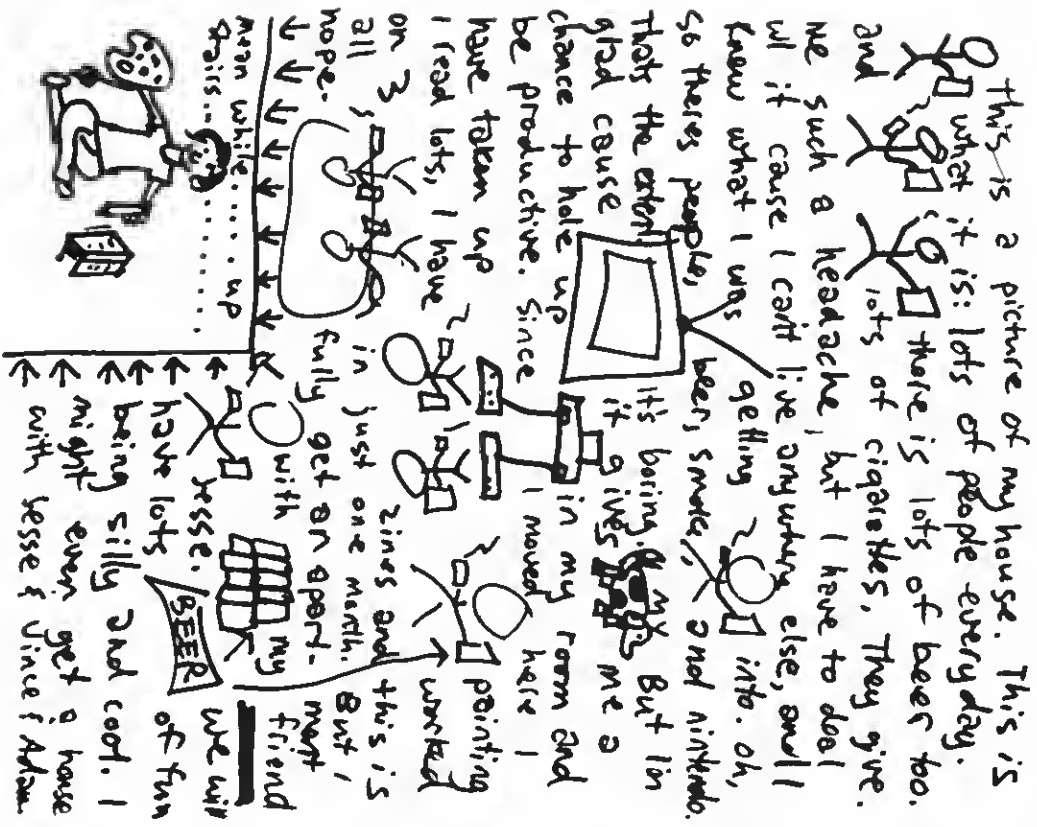 This is a picture of my house. This is
what it is: lots of people everyday.
there is lots of beer too.
and lots of cigarettes. They give
me such a headache, but I have to deal
w/ it cause I cant live anywhere else, and I
knew what I was getting into. oh,
so theres people, beer, smoke, and nintendo.
Thats the extent. It's boring. But I'm
glad cause it gives me a
chance to hole up in my room and
be productive. Since I moved here I
have taken up painting
I read lots, I have worked
on 3 zines and this is
all in just one month. But I
hope- fully get an apart- ment
with my friend
Jesse. we will
have lots of fun
being silly and coot. I
might even get a house
with Jesse & Vince & Adam.
BEER
mean while.... up
stairs..........